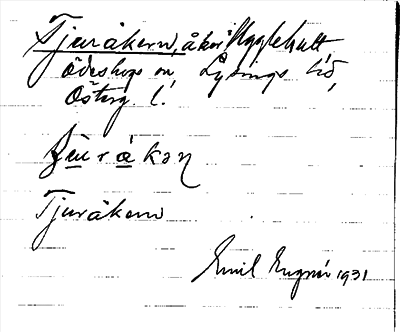 Tjuråkern, åker Hygglehult
Ödeshögs sn, Lysings hd,
Österg. l.
Tjuråkern
Emil Engnér 1931